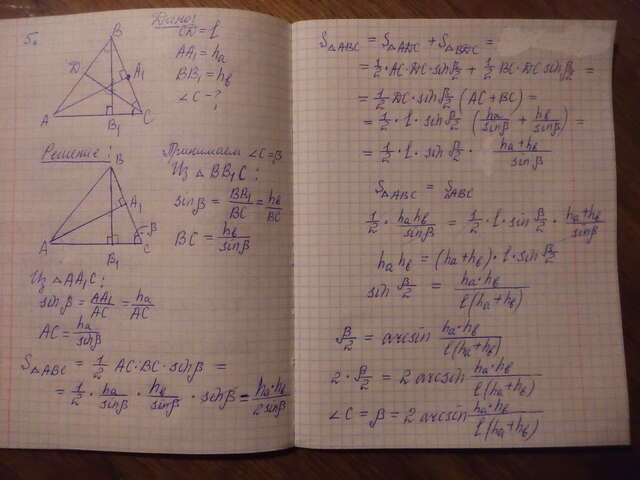 5.
Дано:
CD = l
AA₁ = hₐ
BB₁ = h_b
∠C - ?
B
D
A₁
A
B₁
C
Решение:
B
A₁
β
A
B₁
C
Принимаем ∠C = β
Из △BB₁C:
sin β = BB₁/BC = h_b/BC
BC = h_b/sinβ
Из △AA₁C:
sin β = AA₁/AC = hₐ/AC
AC = hₐ/sinβ
S△ABC = 1/2 AC·BC·sinβ =
= 1/2 · hₐ/sinβ · h_b/sinβ · sinβ = hₐ·h_b/2sinβ
S△ABC = S△ADC + S△BDC =
= 1/2 · AC·DC·sin β/2 + 1/2 BC·DC sin β/2 =
= 1/2 DC·sin β/2 (AC + BC) =
= 1/2 · l · sin β/2 (hₐ/sinβ + h_b/sinβ) =
= 1/2 · l · sin β/2 · hₐ+h_b/sinβ
S△ABC = S△ABC
1/2 · hₐh_b/sinβ = 1/2 · l · sin β/2 · hₐ+h_b/sinβ
hₐh_b = (hₐ+h_b)·l·sin β/2
sin β/2 = hₐ·h_b/l(hₐ+h_b)
β/2 = arcsin hₐ·h_b/l(hₐ+h_b)
2·β/2 = 2 arcsin hₐ·h_b/l(hₐ+h_b)
∠C = β = 2 arcsin hₐ·h_b/l(hₐ+h_b)